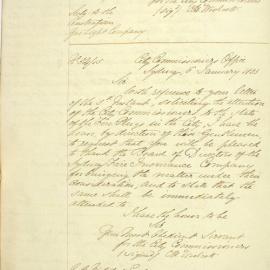 (sigd) Ch. H. Woolcott
Secy to the
Australian
Gas Light Company
City Commissioners Office
Sydney 5 January 1855
Sir
With reference to your letter
of the 3rd Instant, soliciting the attention
of the City Commissioners to the state
of the Fire Plugs in the City, I have the
honor by direction of these Gentlemen
to request that you will be pleased
to thank the Board of Directors of the
Sydney Fire Insurance Company
for bringing the matter under their
consideration, and to state that the
same shall be immediately
attended to
I have the honor to be
Sir
Your Most Obedient Servant
for the City Commissioners
(signed)